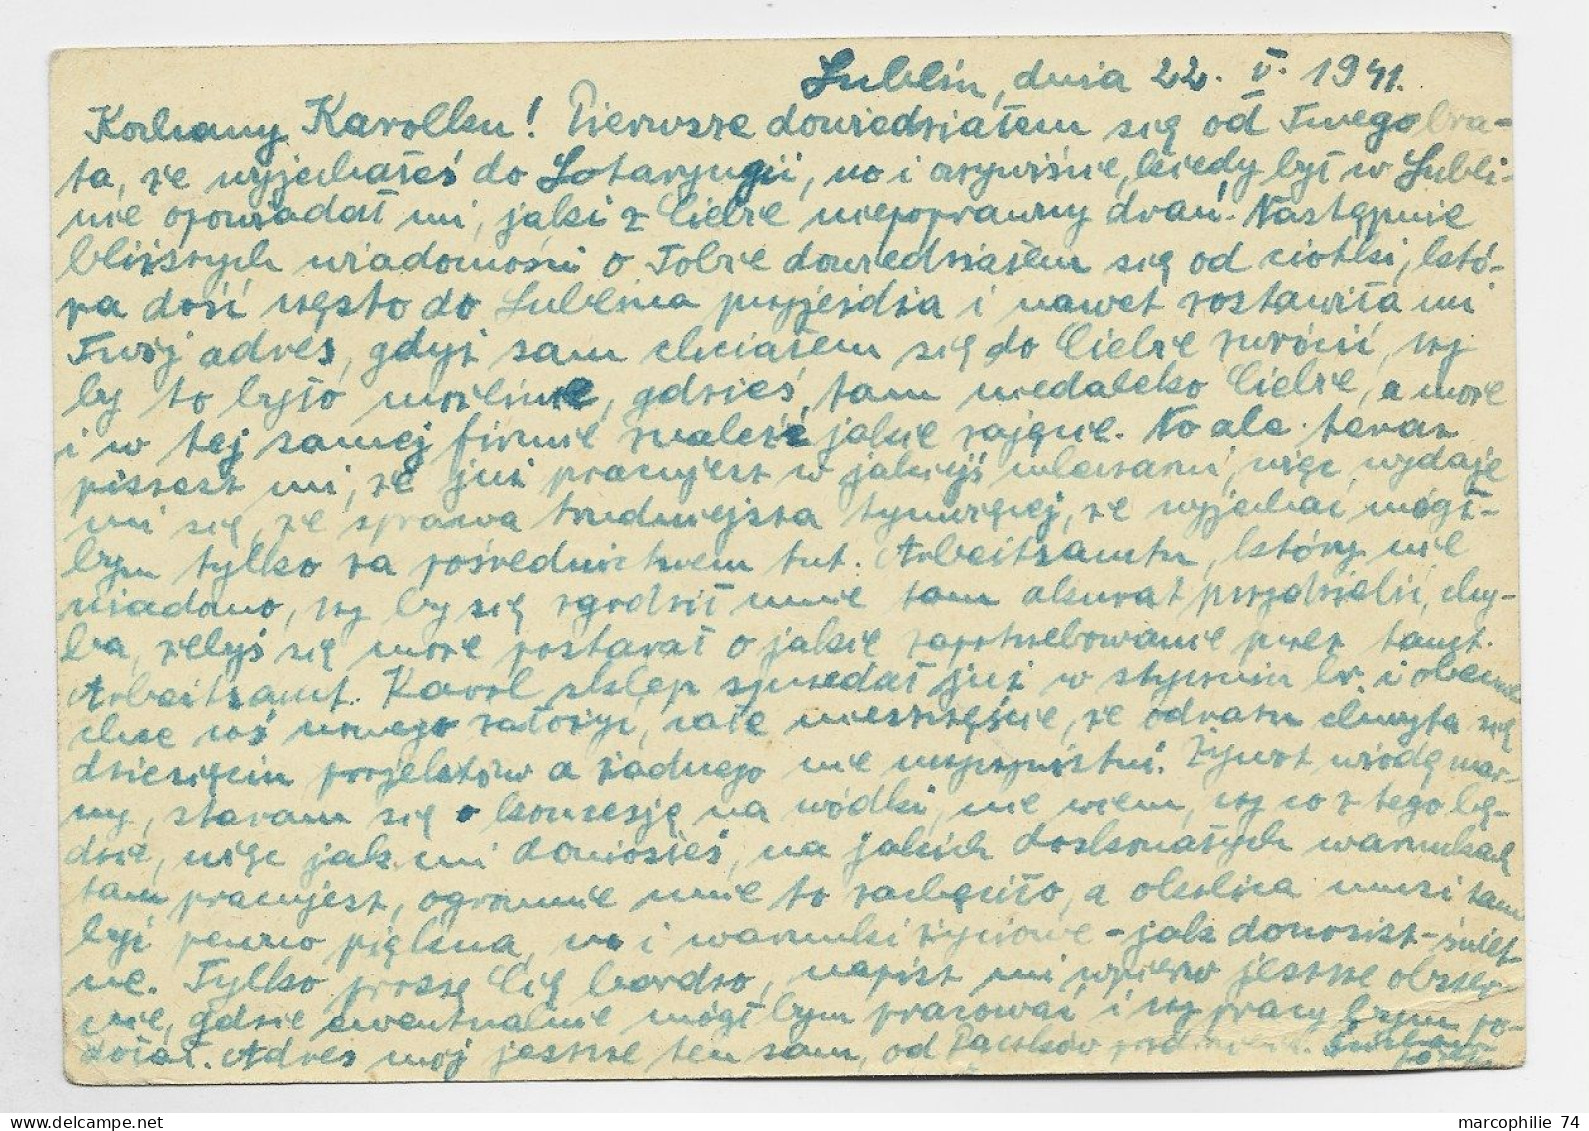 Lublin, dnia 22. V. 1941.
Kochany Karolku! Pierwsze dowiedziałem się od Twego bra-
ta, że wyjechałeś do Lotaryngii, no i oczywiście, kiedy był w Lubli-
nie opowiadał mi, jaki z Ciebie niepoprawny drań. Następnie
bliższych wiadomości o Tobie dowiedziałem się od ciotki, któ-
ra dość często do Lublina przyjeżdża i nawet zostawiła mi
Twój adres, gdyż sam chciałem się do Ciebie zwrócić, czy
by to było możliwe, gdzieś tam niedaleko Ciebie, a może
i w tej samej firmie znaleźć jakie zajęcie. No ale teraz
piszesz mi, że już pracujesz w jakiejś mleczarni, więc wydaje
mi się, że sprawa trudniejsza tymwięcej, że wyjechać mógł-
bym tylko za pośrednictwem tut. Arbeitsamtu, który nie
wiadomo, czy by się zgodził mnie tam akurat przydzielić, chy-
ba, żebyś się może postarał o jakie zapotrzebowanie przez tamt.
Arbeitsamt. Karol sklep sprzedał już w styczniu br. i obecnie
chce coś nowego założyć, całe nieszczęście, że odrazu chwyta się
dziesięciu projektów a żadnego nie uczyści. Żywot wiodę mar-
ny, staram się o koncesję na wódki, nie wiem, czy co z tego bę-
dzie, więc jak mi doniosłeś, na jakich doskonałych warunkach
tam pracujesz, ogromnie mnie to zachęciło, a okolica musi tam
być pewno piękna, no i warunki życiowe - jak donosisz - świet-
ne. Tylko proszę Cię bardzo, napisz mi wpierw jeszcze obszer-
nie, gdzie ewentualnie mógłbym pracować i czy pracy bym po-
dołał. Adres mój jeszcze ten sam, od Pączków
marcophilie 74